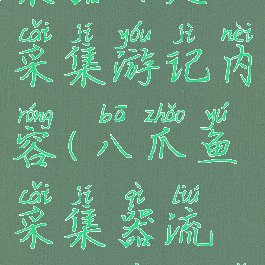 cǎi jí yóu jì nèi
采集游记内
róng bā zhǎo yú
容(八爪鱼
cǎi jí qì liú
采集器流